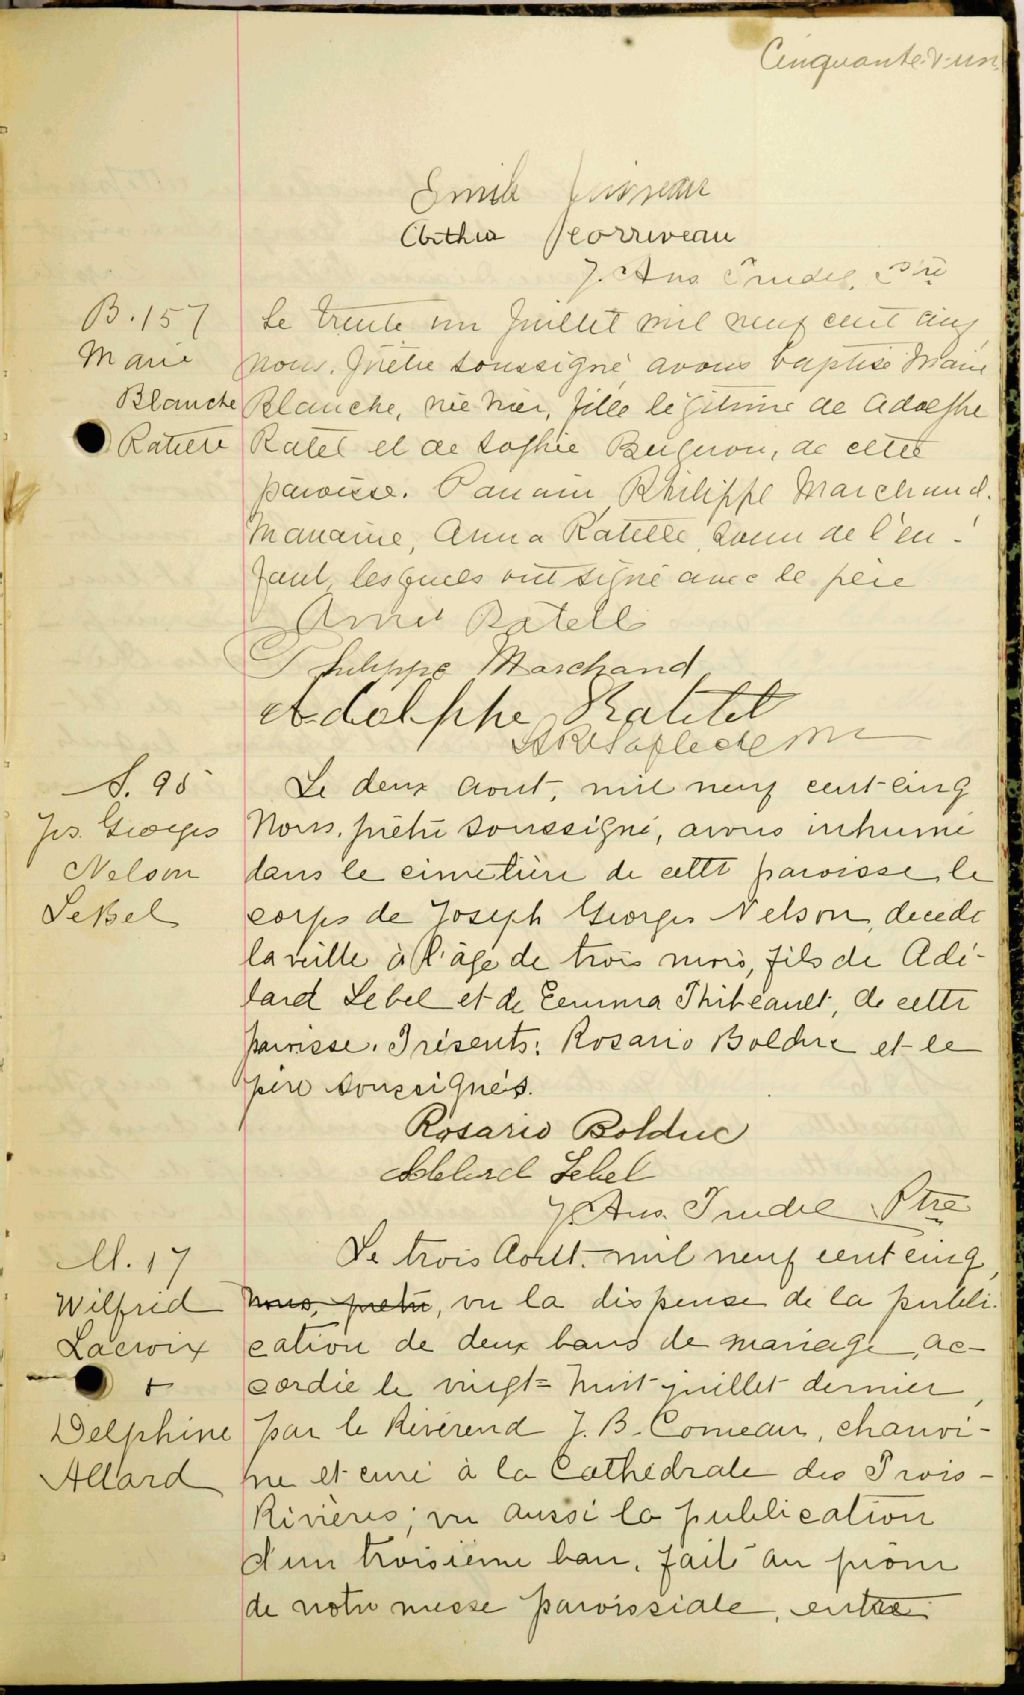 Cinquante & un
Emile
Corriveau
J. Ans. Trudel, Ptre
B. 157
Marie
Blanche
Ratelle
Le trente un Juillet mil neuf cent cinq
nous, prêtre soussigné, avons baptisé Marie
Blanche, née hier, fille légitime de Adolphe
Ratel et de Sophie Bergeron, de cette
paroisse. Parrain, Philippe Marchand.
Marraine, Anna Ratelle, soeur de l'en-
fant, lesquels ont signé avec le père
Anna Ratelle
Philippe Marchand
Adolphe Ratelel
S. 95
Jos. Georges
Nelson
LeBel
Le deux aout, mil neuf cent-cinq
Nous, prêtre soussigné, avons inhumé
dans le cimetière de cette paroisse, le
corps de Joseph Georges Nelson, décédé
la veille à l'âge de trois mois, fils de Adé-
lard Lebel et de Emma Thibeault, de cette
paroisse. Présents: Rosario Bolduc et le
père soussignés.
Rosario Bolduc
Adelard Lebel
J. Ans. Trudel Ptre
M. 17
Wilfrid
Lacroix
+
Delphine
Allard
Le trois Août mil neuf cent cinq,
nous, prêtre, vu la dispense de la publi-
cation de deux bans de mariage, ac-
cordée le vingt=huit juillet dernier,
par le Révérend J. B. Comeau, chanoi-
ne et curé à la Cathédrale des Trois-
Rivières; vu aussi la publication
d'un troisième ban, faite au prône
de notre messe paroissiale, entre